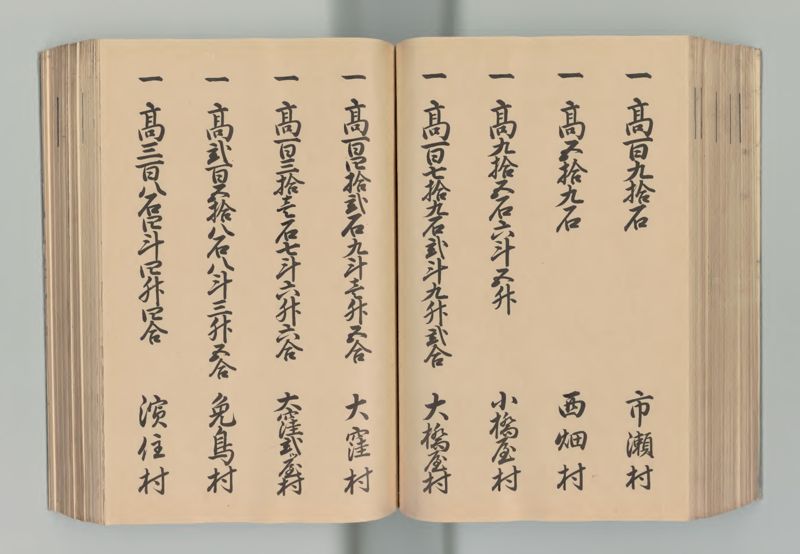 一 髙百九拾石 市瀬村
一 髙五拾九石 西畑村
一 髙九拾五石六斗五升 小橋屋村
一 髙百七拾九石弐斗九升弐合 大橋屋村
一 髙百四拾弐石九斗壱升五合 大窪村
一 髙百三拾壱石七斗六升六合 大窪弐屋村
一 髙弐百五拾八石八斗三升五合 免鳥村
一 髙三百八石四斗四升四合 濱住村